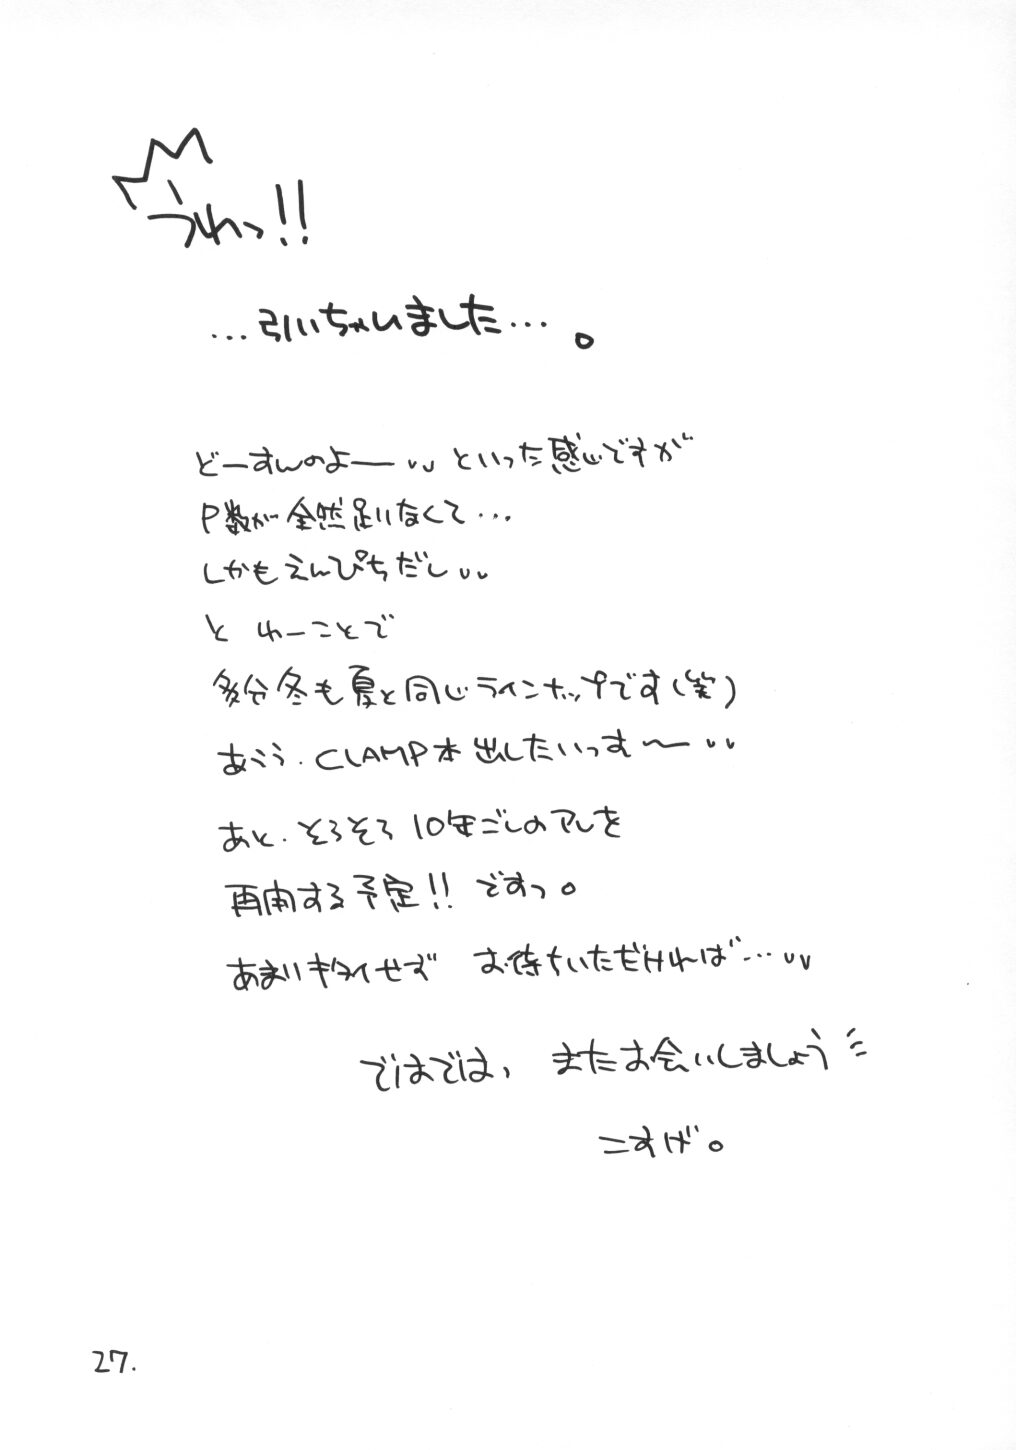 うわっ!!
…引いちゃいました…。
どーすんのよー といった感じですが
P数が全然足りなくて…
しかもえんぴちだし
と ゆーことで
多分冬も夏と同じラインナップです(笑)
あうう. CLAMP本出したいっす〜
あと. そろそろ10年ごしのアレを
再開する予定!! ですっ。
あまりキタイせず お待ちいただければ…
ではでは、 またお会いしましょう
こすげ。
27.